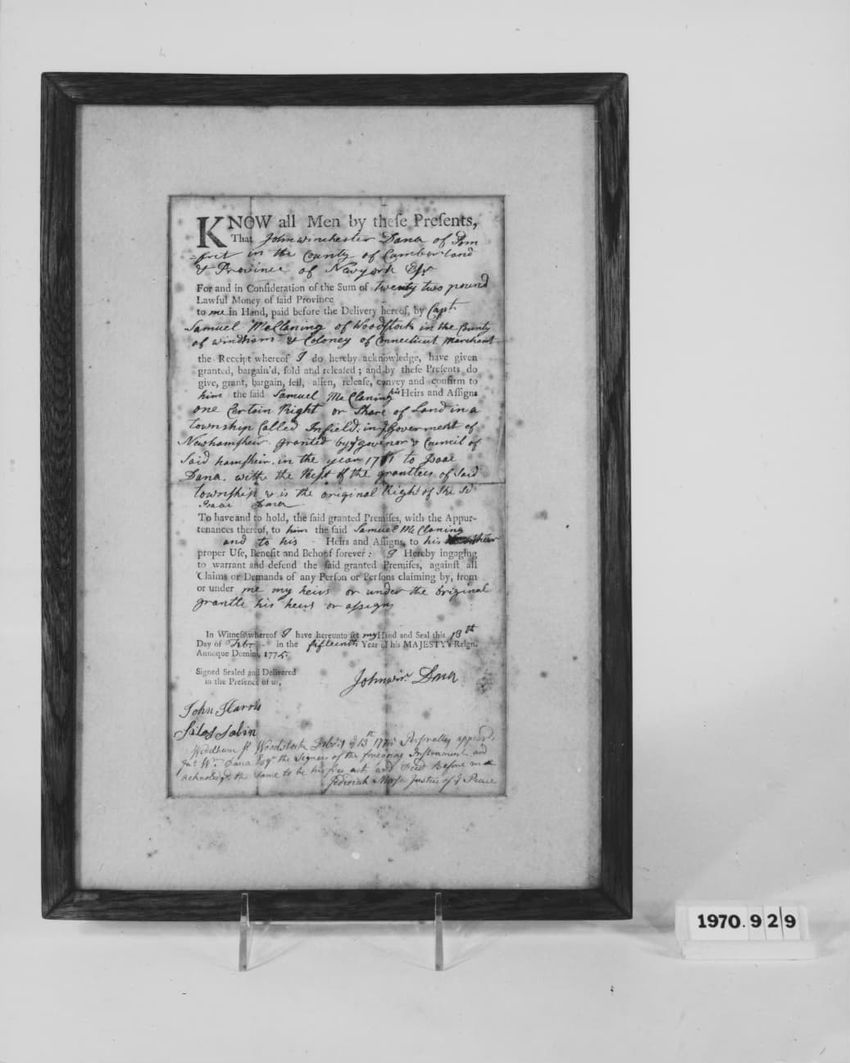 KNOW all Men by theſe Preſents,
That John winchester Dana of Pom
=fret in the County of Cumberland
& Province of Newyork Esqr
For and in Conſideration of the Sum of Twenty two pound
Lawful Money of ſaid Province
to me in Hand, paid before the Delivery hereof, by Capt.
Samuel McClaning of Woodstock in the County
of windham & Coloney of Connecticut Merchant
the Receipt whereof I do hereby acknowledge, have given
granted, bargain'd, ſold and releaſed; and by theſe Preſents do
give, grant, bargain, ſell, alien, releaſe, convey and confirm to
him the ſaid Samuel McClaning his Heirs and Aſſigns
one Certain Right or Share of Land in a
township Called Infield: in ye Goverment of
Newhampsheir granted by ye govenor & Council of
Said hampsheir in the year to Isaac
Dana. with the Rest of the grantees of Said
township & is the original Right of the Sd
Isaac Dana
To have and to hold, the ſaid granted Premiſes, with the Appur-
tenances thereof, to him the ſaid Samuel McClaning
and to his Heirs and Aſſigns, to his
proper Uſe, Benefit and Behoof forever: I Hereby ingaging
to warrant and defend the ſaid granted Premiſes, againſt all
Claims or Demands of any Perſon or Perſons claiming by, from
or under me my heirs or under the original
grantee his heirs or assigns
In Witneſs whereof I have hereunto ſet my Hand and Seal this 13th
Day of Febr. in the fifteenth Year of his MAJESTY's Reign.
Annoque Domini, 1775.
Signed Sealed and Delivered
in the Preſence of us,
John win. Dana
John Harris
Silas Sabin
Windham ss Woodstock Febry ye 13th 1775 Personally appeard
Jno Wn. Dana Esqr the Signer of the foregoing Instrument and
acknowledgd the Same to be his free act and Deed Before me
Jedidiah Morse Justice of ye Peace
1970.929